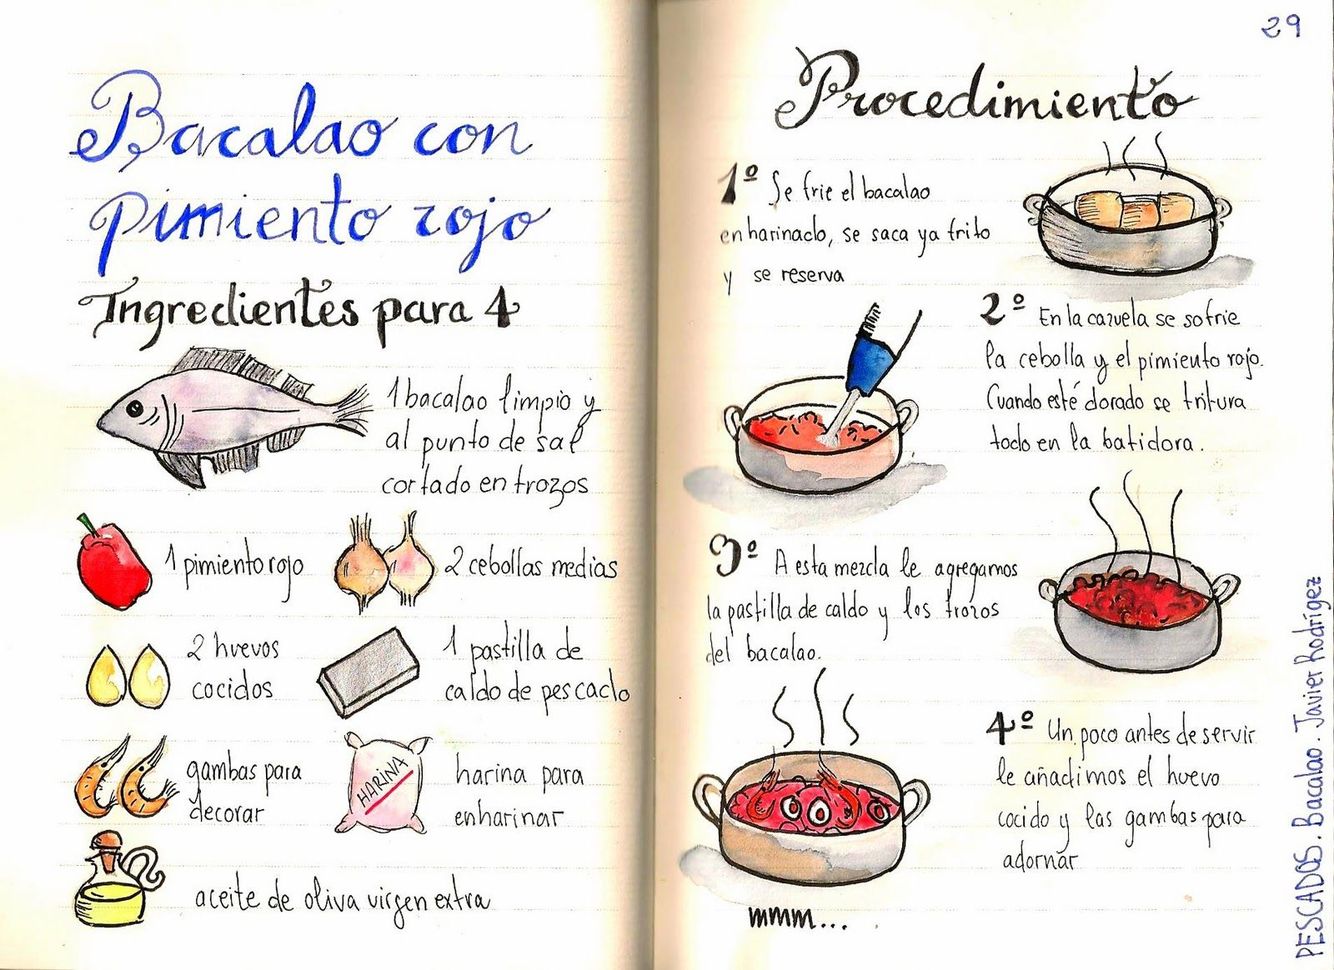 Bacalao con
pimiento rojo
Ingredientes para 4
1 bacalao limpio y
al punto de sal
cortado en trozos
1 pimiento rojo
2 cebollas medias
2 huevos
cocidos
1 pastilla de
caldo de pescado
gambas para
decorar
HARINA
harina para
enharinar
aceite de oliva virgen extra
29
Procedimiento
1º Se frie el bacalao
enharinado, se saca ya frito
y se reserva
2º En la cazuela se sofrie
la cebolla y el pimiento rojo.
Cuando esté dorado se tritura
todo en la batidora.
3º A esta mezcla le agregamos
la pastilla de caldo y los trozos
del bacalao.
4º Un poco antes de servir
le añadimos el huevo
cocido y las gambas para
adornar
mmm...
PESCADOS. Bacalao. Javier Rodrígez